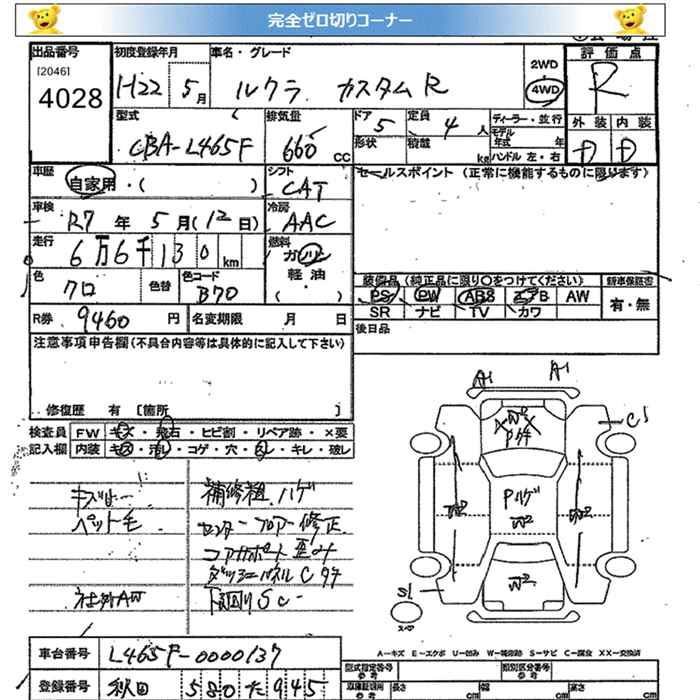 完全ゼロ切りコーナー
出品番号 初度登録年月 車名・グレード 評価点
[2046]
4028 H22 5月 ルクラ カスタムR 2WD 4WD R
型式 排気量 ドア 定員 ディーラー・並行 外装 内装
CBA-L465F 660 CC 5 4人 モデル年式 年 D D
形状 積載 kg ハンドル 左・右
車歴 自家用・( ) シフト CAT セールスポイント (正常に機能するものに限ります)
車検 R7年 5月(12日) 冷房 AAC
走行 6万6千130km 燃料 ガソリン
軽油・( )
色 クロ 色替 色コード B70
装備品 (純正品に限り○をつけてください) 新車保証書
PS PW ABS エアB AW 有・無
SR ナビ TV カワ
R券 9460円 名変期限 月 日 後日品
注意事項申告欄(不具合内容等は具体的に記入して下さい)
修復歴 有 [箇所 ]
検査員 FW キズ・飛石・ヒビ割・リペア跡・×要
記入欄 内装 キズ・汚レ・コゲ・穴・スレ・キレ・破レ
補修粗 ハゲ
ペット毛 センターフロアー修正
コアサポート歪み
社外AW 下回りSC
A1 A1
W2
Pキズ
C1
Pハゲ
W2
W2 W2
W2
S1
A－キズ E－エクボ U－凹み W－補修跡 S－サビ C－腐食 XX－交換済
車台番号 L465F-0000137
登録番号 秋田 580 た 945
型式指定番号 参考 類別区分番号 参考
長さ cm 幅 cm 高さ cm